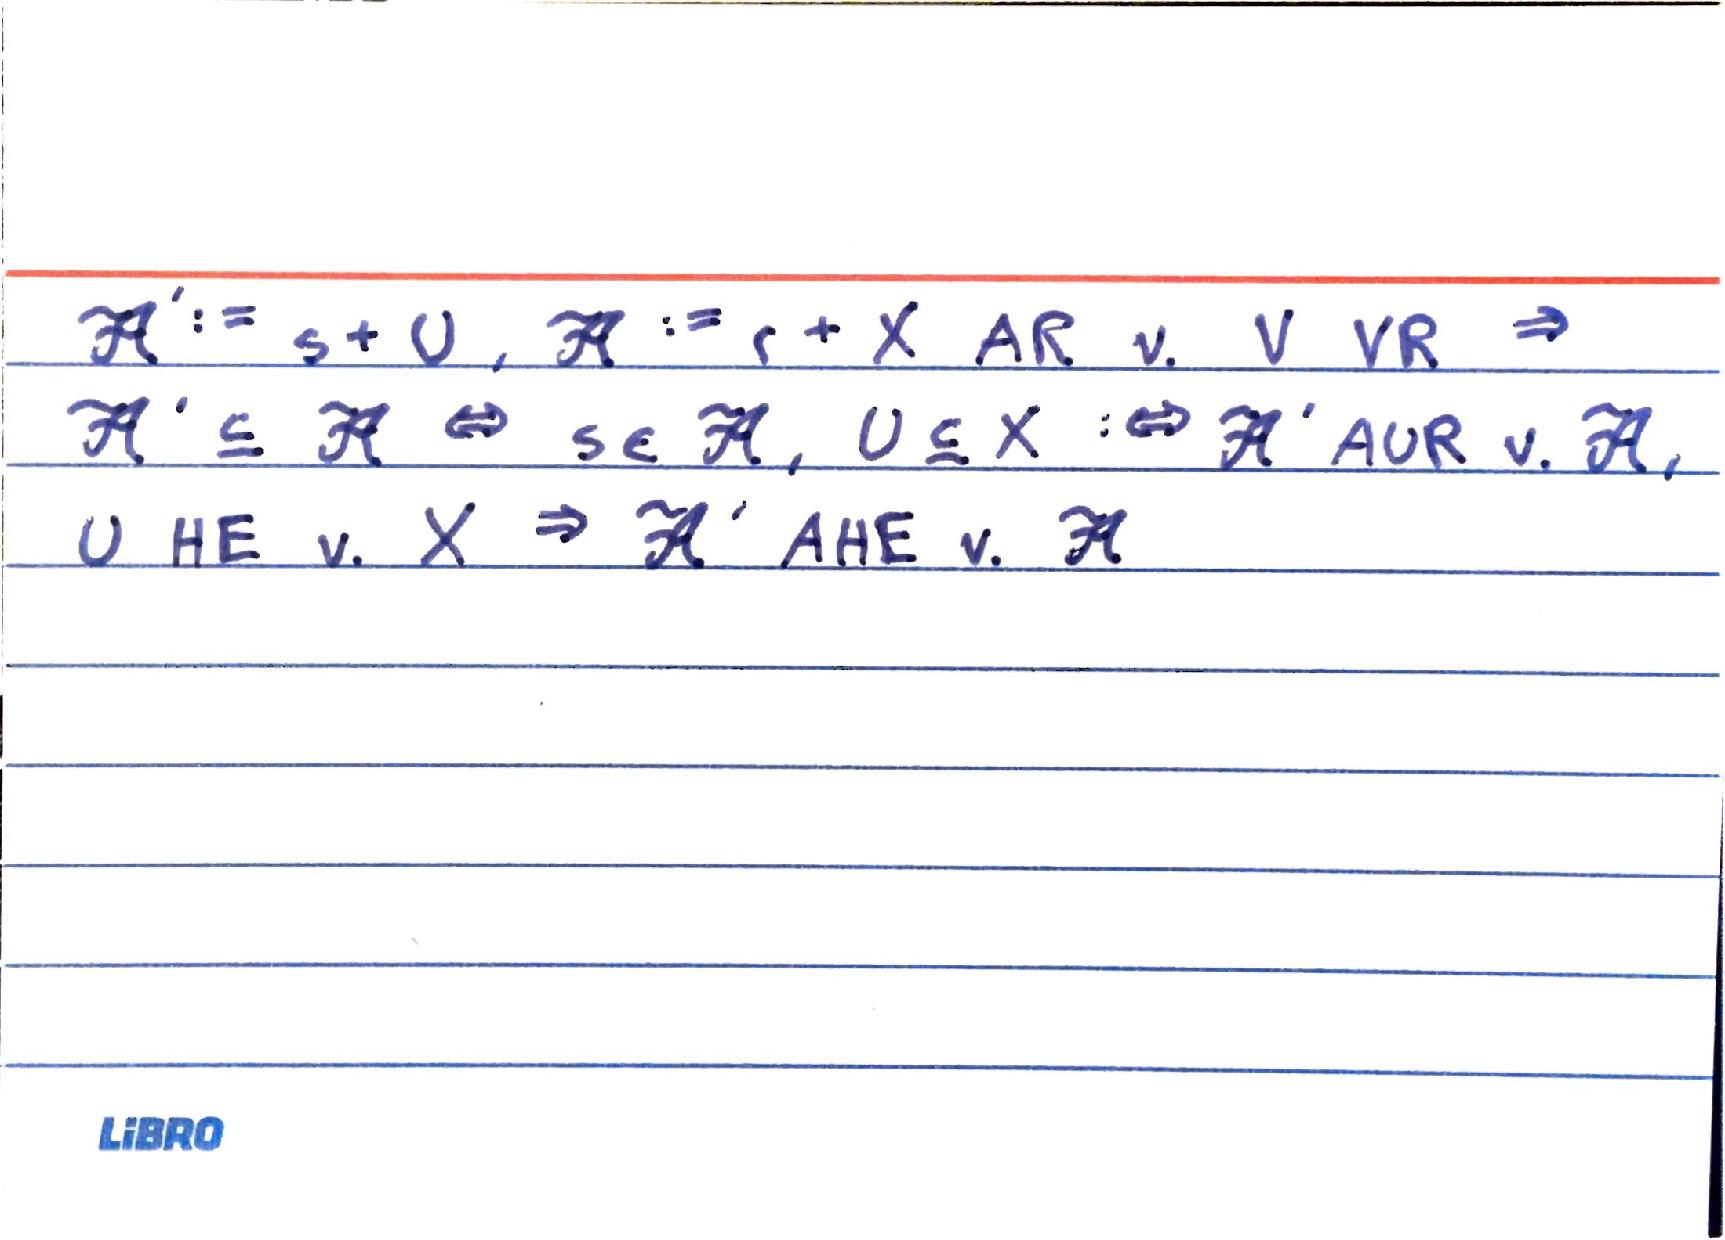 𝒜' := s + U, 𝒜 := r + X AR v. V VR ⇒
𝒜' ⊆ 𝒜 ⇔ s ∈ 𝒜, U ⊆ X :⇔ 𝒜' AUR v. 𝒜,
U HE v. X ⇒ 𝒜' AHE v. 𝒜
LiBRO